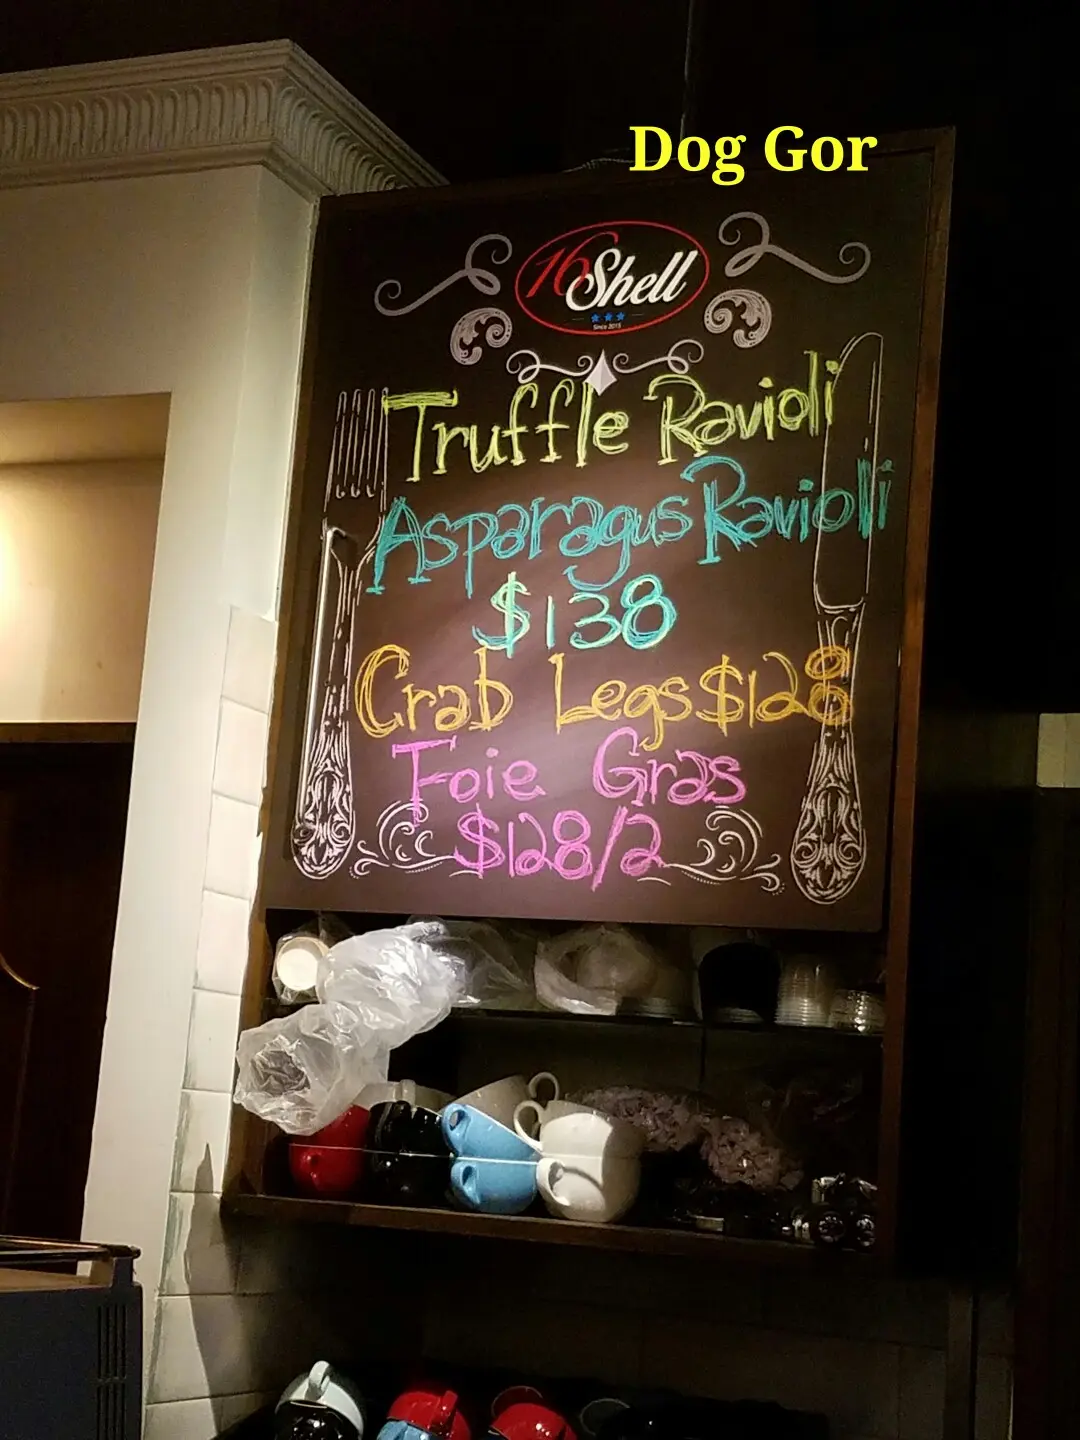 Dog Gor
16 Shell
Since 2015
Truffle Ravioli
Asparagus Ravioli
$138
Crab Legs $128
Foie Gras
$128/2